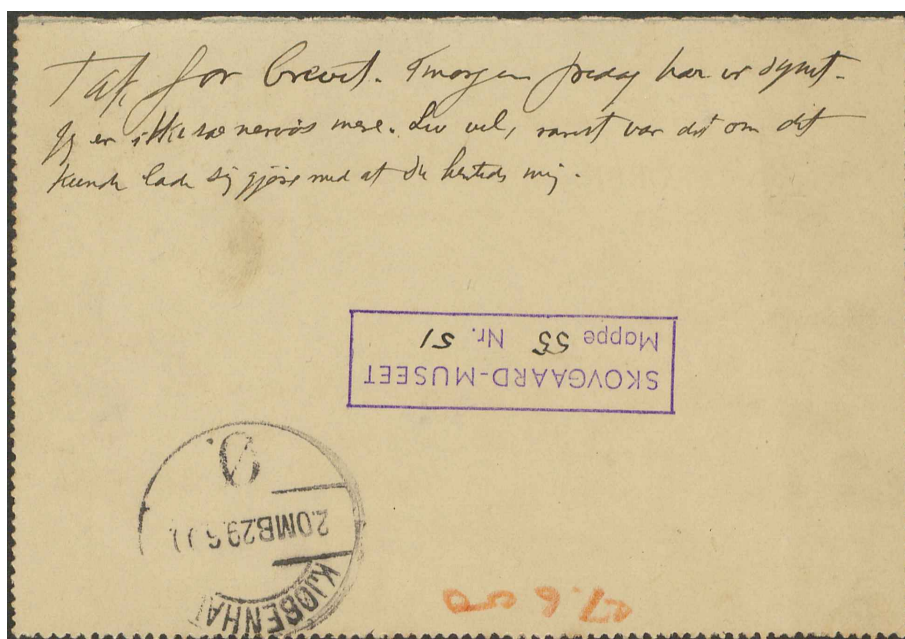 Tak for brevet. Imorgen fredag har vi synet.
Jeg er ikke saa nervøs mere. Lev vel, rarest var det om det
kunde lade sig gjøre med at du hentede mig.
SKOVGAARD-MUSEET
Mappe 55 Nr. 51
KJØBENHA
2.OMB29.6
Ø.
27.6